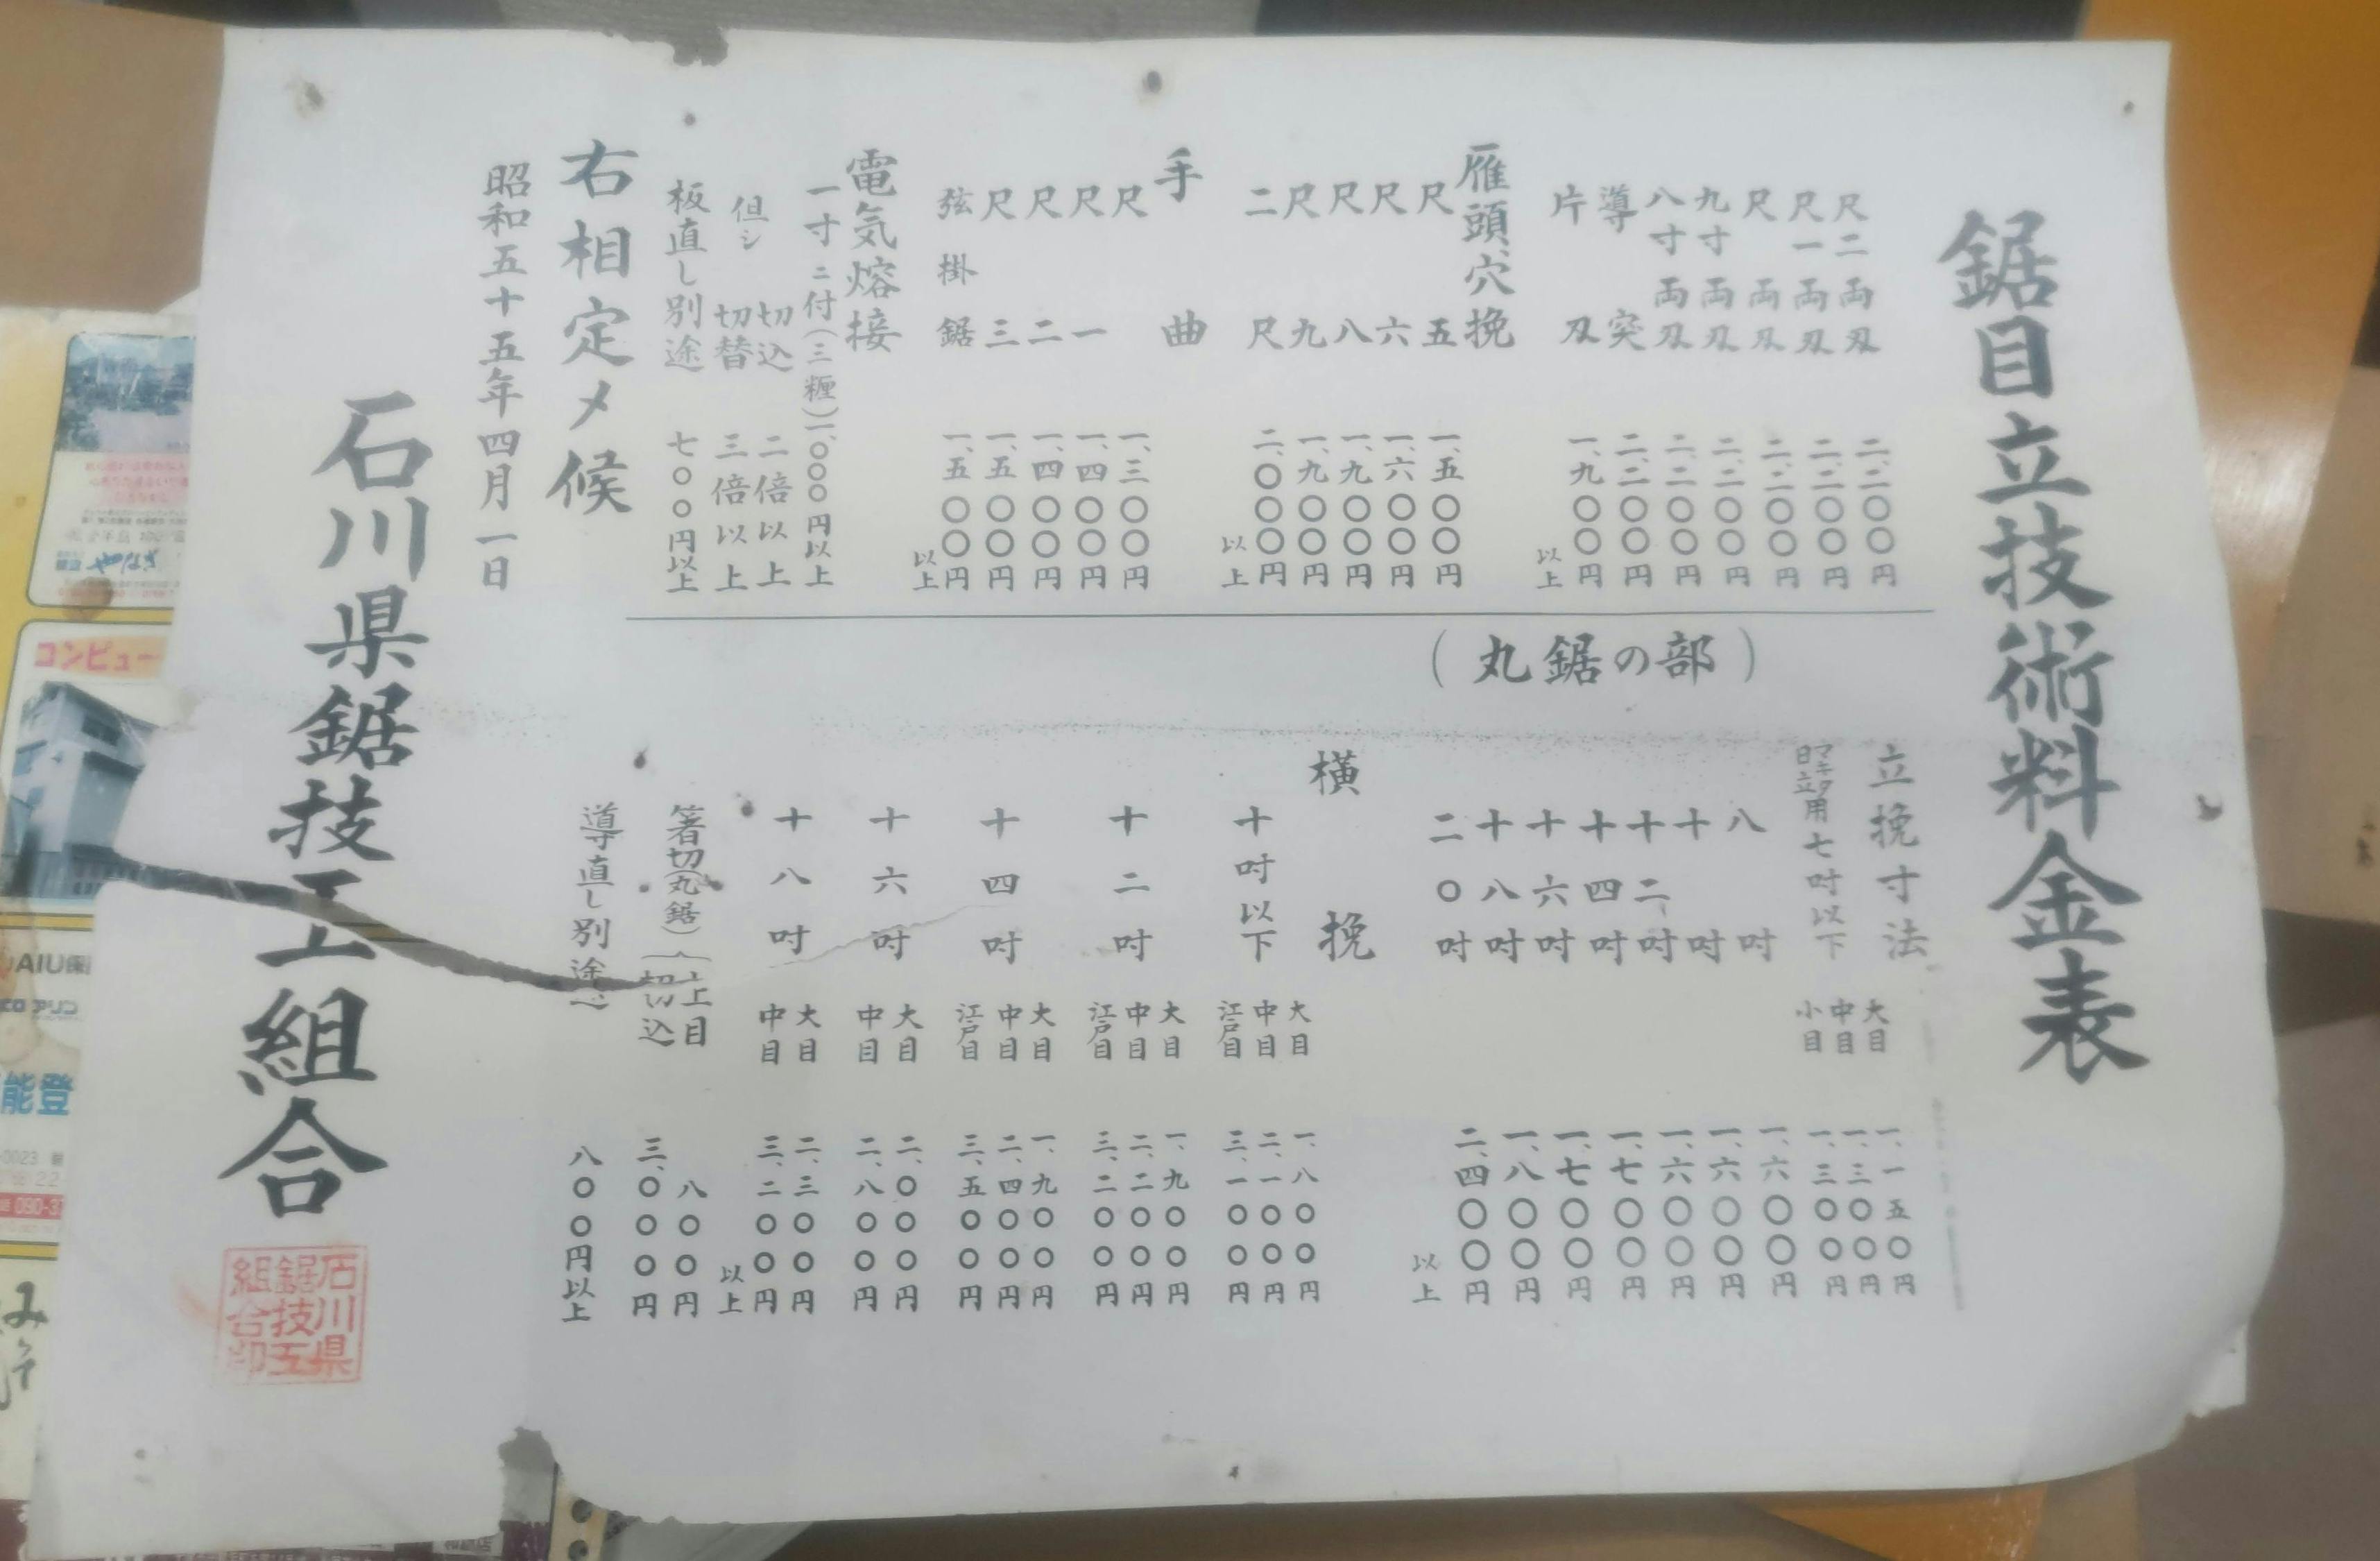 鋸目立技術料金表
尺二両刄 二、二〇〇円
尺一両刄 二、二〇〇円
尺両刄 二、二〇〇円
九寸両刄 二、二〇〇円
八寸両刄 二、二〇〇円
導突 二、二〇〇円
片刄 一、九〇〇円
以上
雁頭、穴挽
尺五 一、五〇〇円
尺六 一、六〇〇円
尺八 一、九〇〇円
尺九 一、九〇〇円
二尺 二、〇〇〇円
以上
手曲
尺 一、三〇〇円
尺一 一、四〇〇円
尺二 一、四〇〇円
尺三 一、五〇〇円
弦掛鋸 一、五〇〇円
以上
電気熔接
一寸ニ付(三糎)一、〇〇〇円以上
但シ 切込 二倍以上
切替 三倍以上
板直し別途 七〇〇円以上
右相定メ候
昭和五十五年四月一日
(丸鋸の部)
立挽寸法
マキタ日立用七吋以下
大目 一、一五〇円
中目 一、三〇〇円
小目 一、三〇〇円
八吋 一、六〇〇円
十吋 一、六〇〇円
十二吋 一、六〇〇円
十四吋 一、七〇〇円
十六吋 一、七〇〇円
十八吋 一、八〇〇円
二〇吋 二、四〇〇円
以上
横挽
十吋以下 大目 一、八〇〇円
中目 二、一〇〇円
江戸目 三、一〇〇円
十二吋 大目 一、九〇〇円
中目 二、二〇〇円
江戸目 三、二〇〇円
十四吋 大目 一、九〇〇円
中目 二、四〇〇円
江戸目 三、五〇〇円
十六吋 大目 二、〇〇〇円
中目 二、八〇〇円
十八吋 大目 二、三〇〇円
中目 三、二〇〇円
以上
箸切(丸鋸) 上目 八〇〇円
切込 三、〇〇〇円
導直し別途 八〇〇円以上
石川県鋸技工組合
石川県
鋸技工
組合印
コンピュー
AIU保
能登
0023
22
090-3